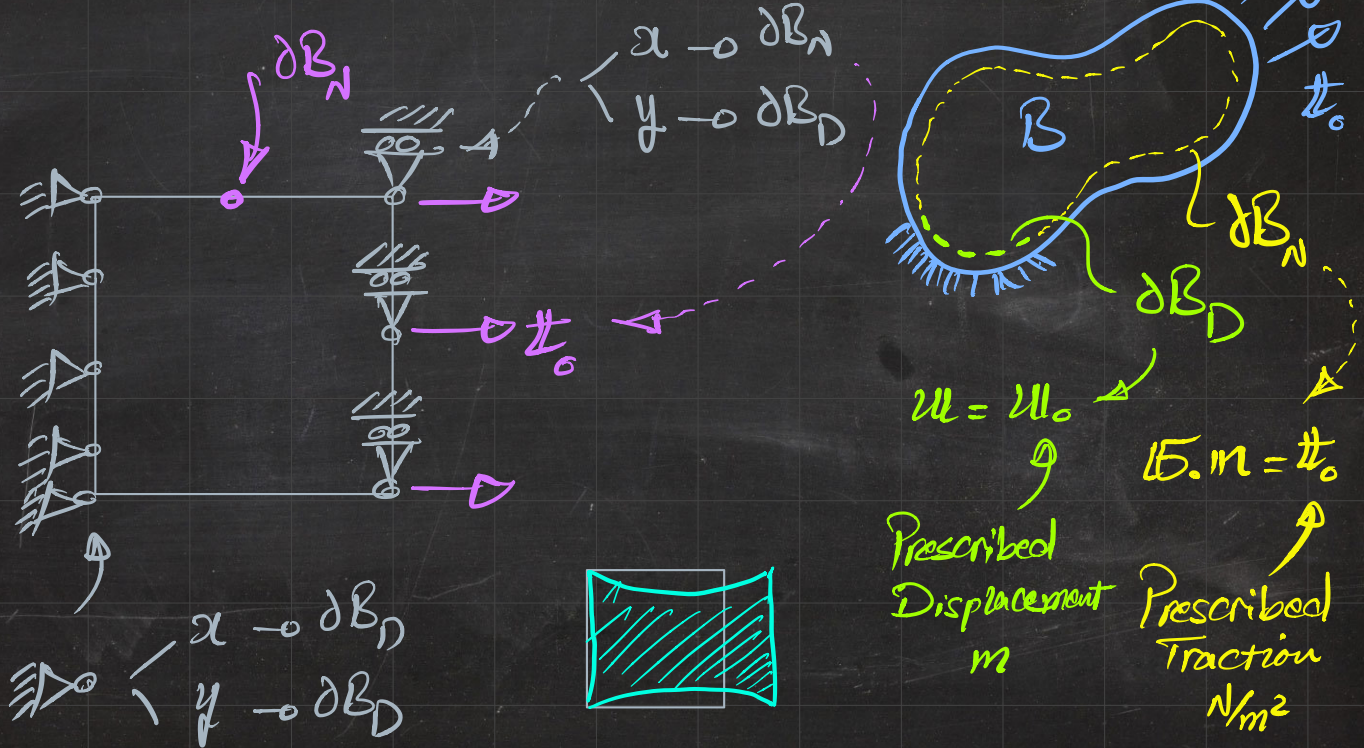 ∂B_N
x → ∂B_N
y → ∂B_D
t₀
x → ∂B_D
y → ∂B_D
B
t₀
∂B_N
∂B_D
u = u₀
σ.n = t₀
Prescribed
Displacement
m
Prescribed
Traction
N/m²